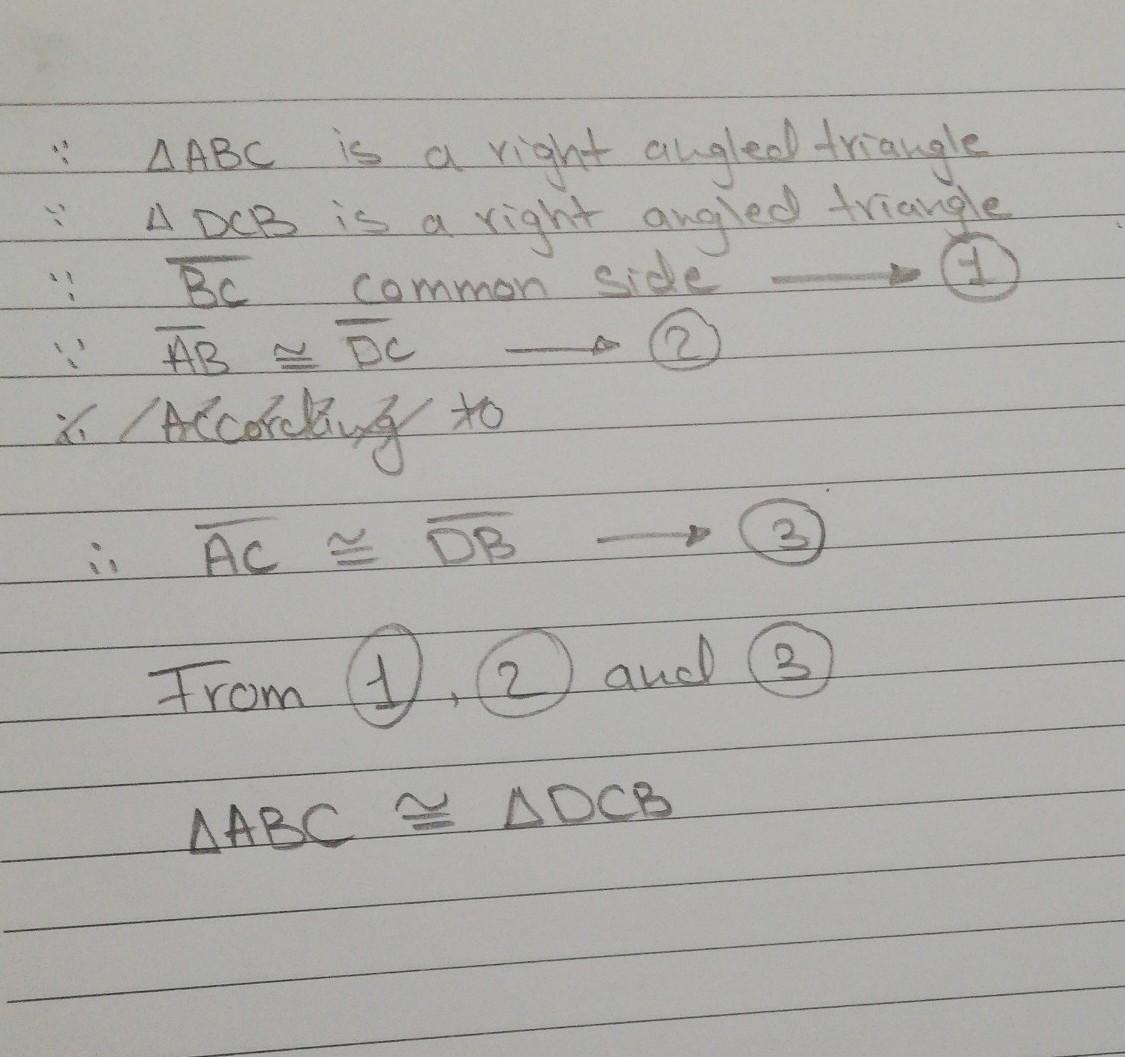 ∵ ΔABC is a right angled triangle
∵ Δ DCB is a right angled triangle
∵ B̅C̅ common side ⟶ ①
∵ A̅B̅ ≅ D̅C̅ ⟶ ②
∴ According to
∴ A̅C̅ ≅ D̅B̅ ⟶ ③
From ①, ② and ③
ΔABC ≅ ΔDCB